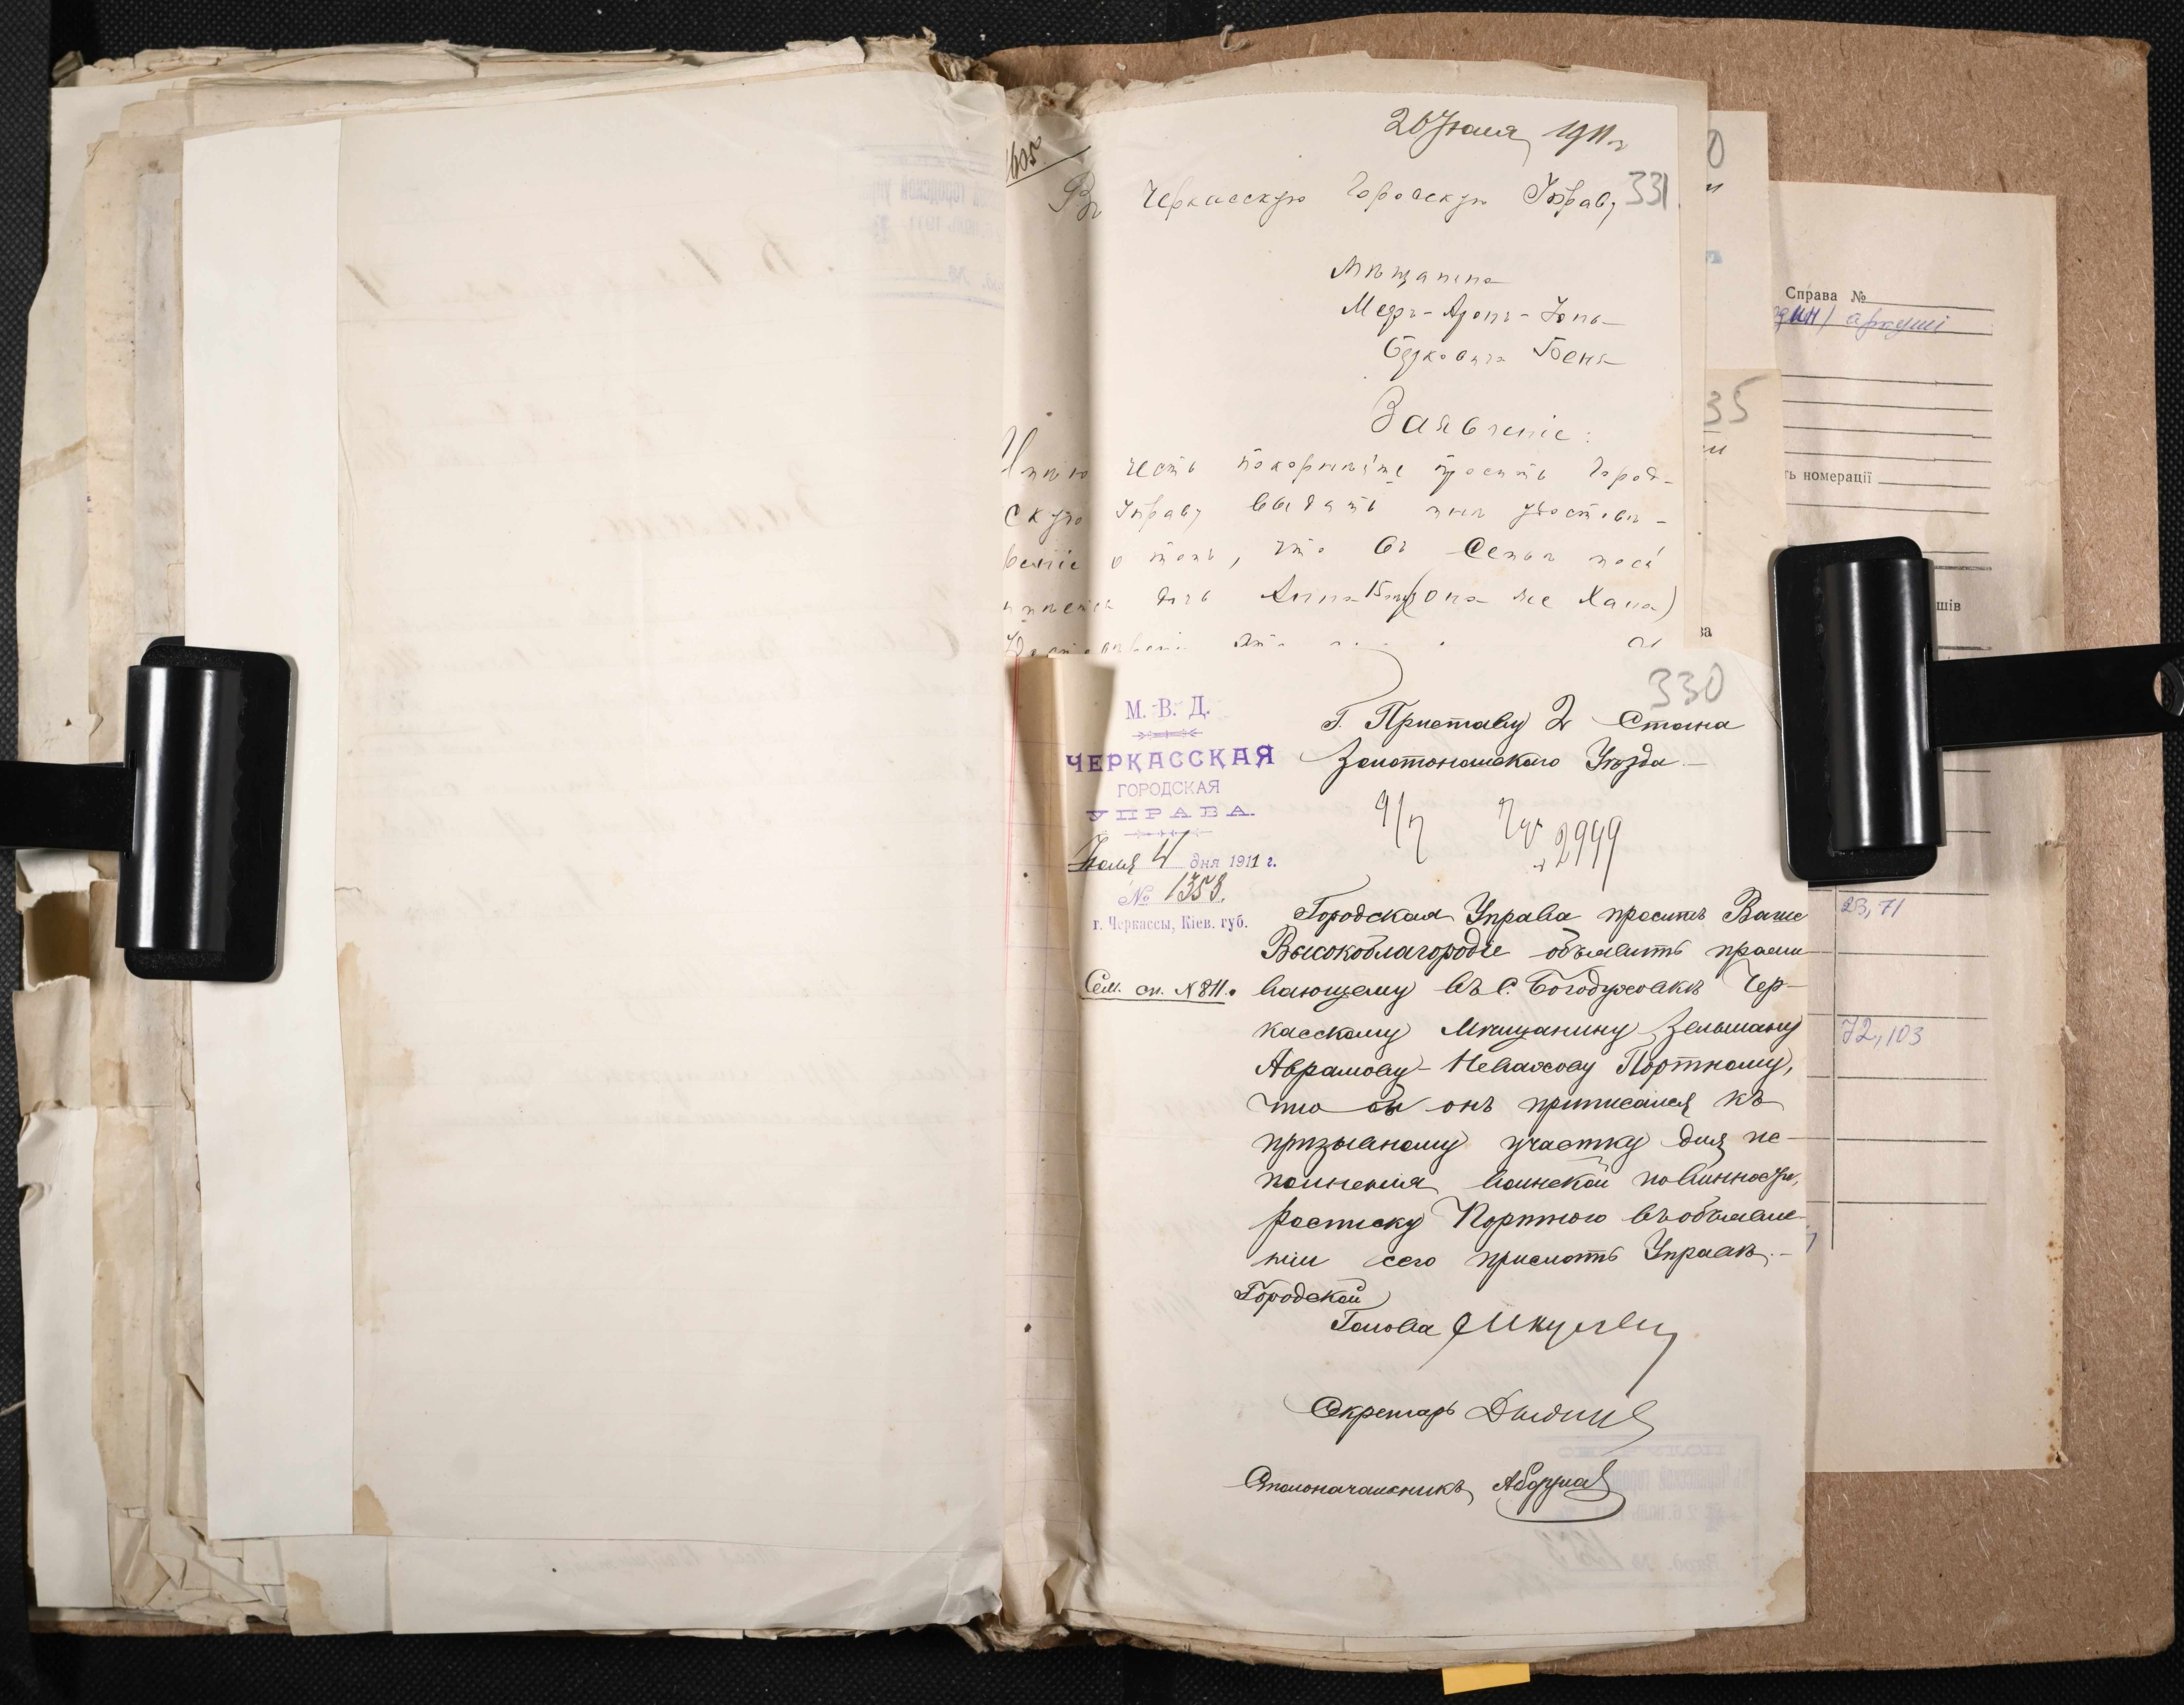 1605
26 Юля 1911 г
331
Въ Черкасскую Городскую Управу
Мѣщанина
Меръ-Аронъ-Іона
Берковича Бена
Заявленіе:
Имѣю честь покорнѣйше просить Город-
скую Управу выдать мнѣ удостовѣ-
реніе о томъ, что въ Семьѣ моей
имѣется дочь Анна (она же Хана)
330
М. В. Д.
ЧЕРКАССКАЯ
ГОРОДСКАЯ
УПРАВА.
Июля 4 дня 1911 г.
№ 1353.
г. Черкассы, Кіев. губ.
Сем. сп. № 811.
Г. Приставу 2 Стана
Золотоношскаго Уѣзда
9/7
2999
Городская Управа проситъ Ваше
Высокоблагородіе объявить прожи-
вающему въ с. Богодуховкѣ Чер-
касскому Мѣщанину Зельману
Аврамову-Невахову Портному,
что бы онъ приписался къ
призывному участку для ис-
полненія воинской повинности,
росписку Портного въ объявле-
ніи сего прислать Управѣ.
Городской
Голова
Секретарь
Столоначальникъ
Справа №
аркуші
35
ть номерації
шів
23, 71
72, 103